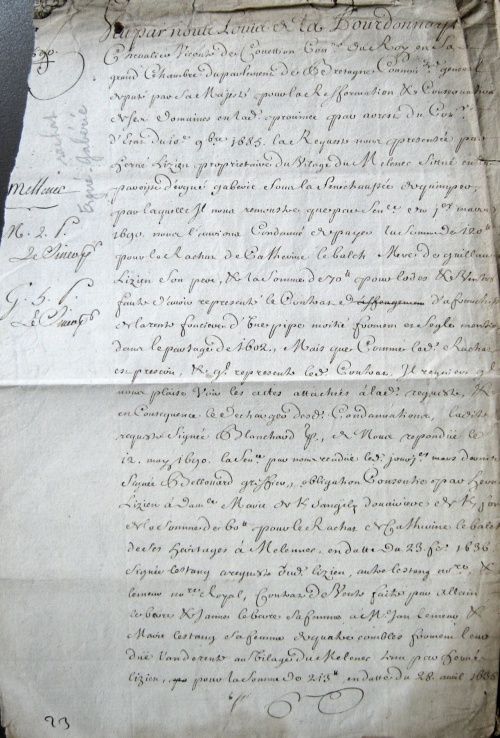 Veu par nous Louis de la Bourdonnaye
Chevallier Viconte de Couettion Con.er du Roy en sa
grand Chambre du parlement de Bretagne Commis.re general
deputé par sa Majesté pour la Refformation & Conservation
de ses domaines en lad. province par arrest du Con.
d'Estat du 9bre 1685. la Requeste nous presentée par
Hervé Lizien proprietaire du Village du Melenec Situé en
paroisse d'ergué gaberic & sous la Seneschaussée de quimper
par laquelle Il nous remonstre que par Sen.ce du 1er mars
1690. nous l'aurions Condamné de payer la somme de
pour le Rachat de Catherine le balch Mere de guillaume
Lizien son pere, & la somme de 70tt pour lodes & Ventes
faute d'avoir representé le Contrat d'
de la rente fonciere d'Une pipe moitié froment et seigle
dans le partage de 1602, Mais que Comme led. Rachat
est prescrit, & q'il represente led. Contrat, Il requiert q'il
nous plaise Voir les actes attachées à lad. requeste, &
en Consequence le descharger desd. Condamnations, ladite
requeste Signée Blanchard p., de Nous repondüe le
12. may 1690. la Sen.ce par nous rendüe led. jour 1er mars dernier
Signée Bellouard greffier, obligation Consentie par Hervé
Lizien à dam.lle Marie de K douairiere de K
de la somme de 60tt pour le Rachat de Catherine le balch
de ses heritages à Melennec, en datte du 23. fev. 1636
Signée lestang a requeste dud. lizien, autre lestang no.re &
lemeur no.re Royal, Contrat de Vente faite par allain
le bevre & Jeanne le bevre sa femme, à M.e Jan lemeur &
Marie lestang sa femme de quatre combles froment
düe Van de rente au Village du Melenec tenu par hervé
lizien, pour la somme de 215tt en datte du 28. avril 1638
rachat
Ergué-Gabéric
Mellenec
N. 2. f.
G. 5. f.
23